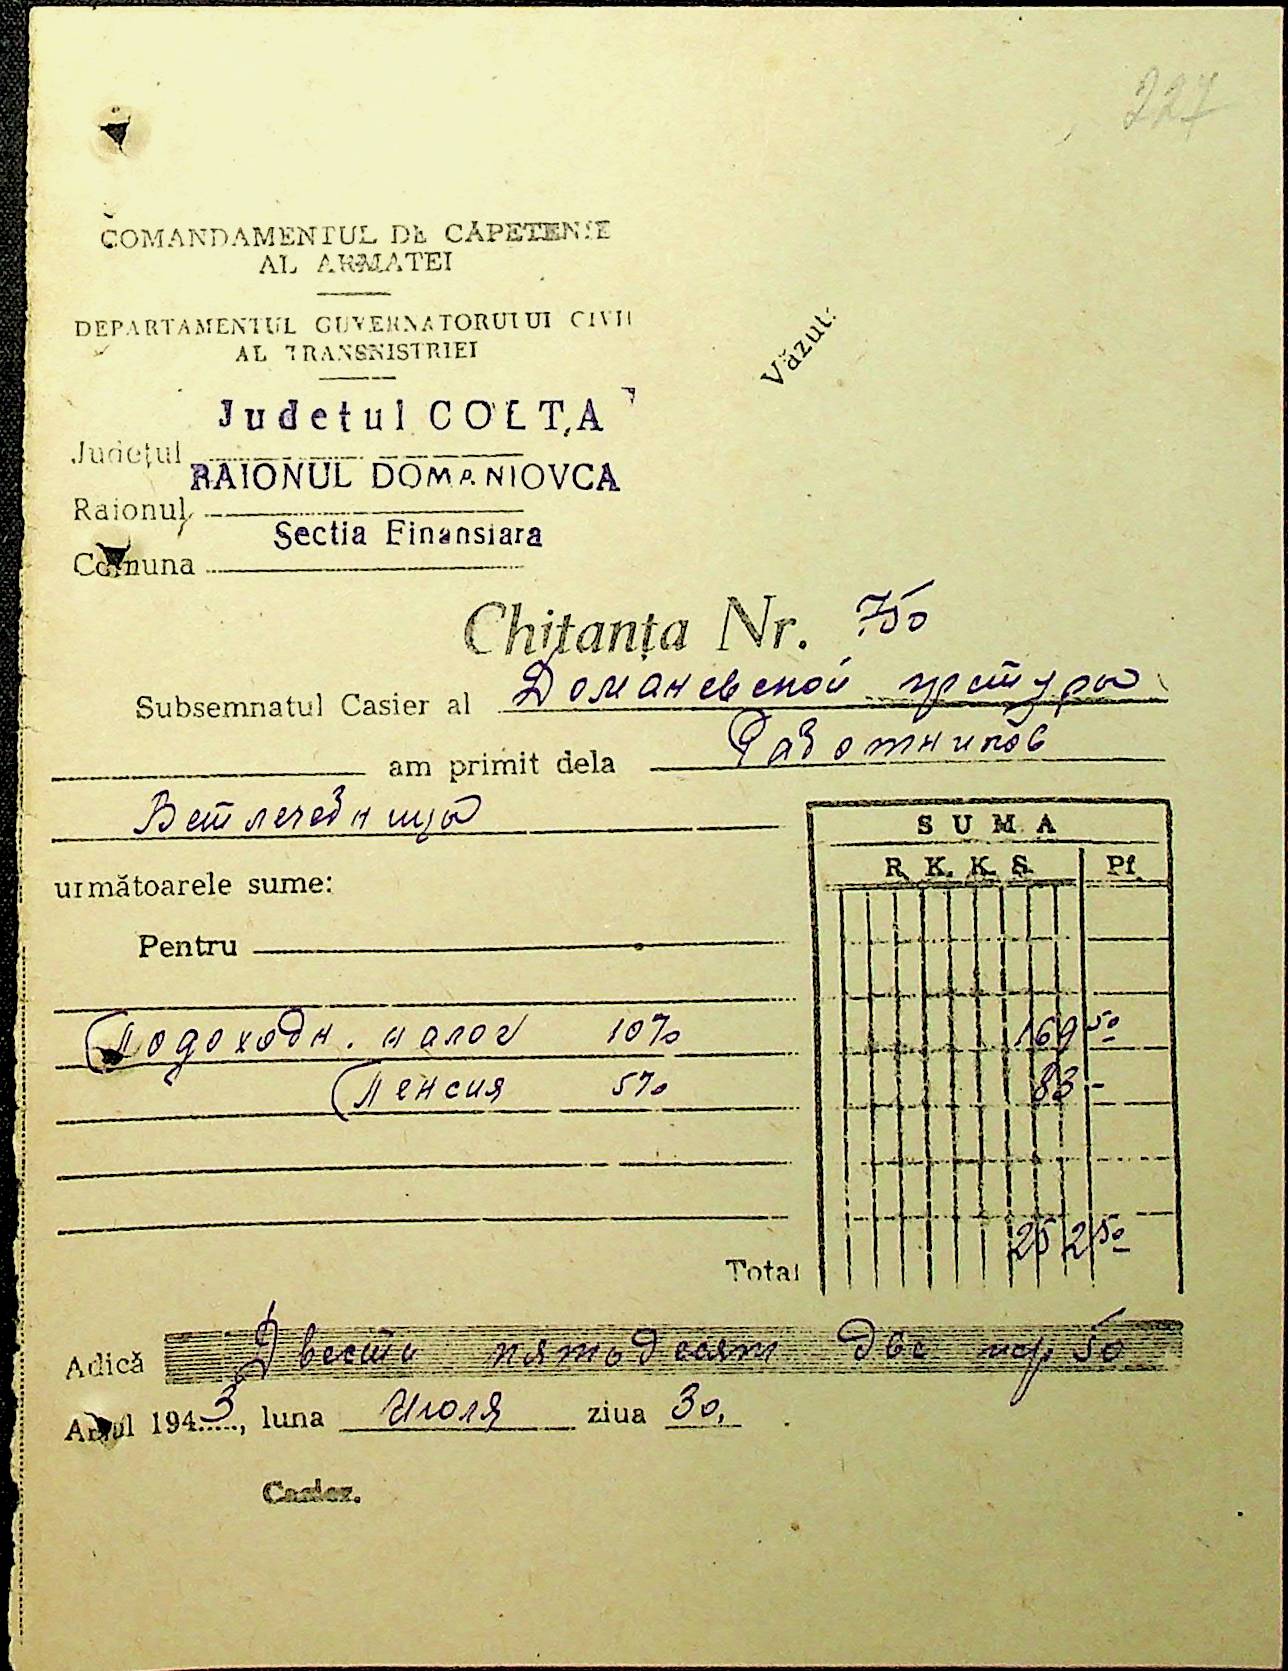 227
COMANDAMENTUL DE CĂPETENIE
AL ARMATEI
DEPARTAMENTUL GUVERNATORULUI CIVIL
AL TRANSNISTRIEI
Văzut:
Judetul COLTA
Județul
RAIONUL DOMANIOVCA
Raionul
Sectia Finansiara
Comuna
Chitanța Nr. 750
Subsemnatul Casier al Доманевской претуры
am primit dela Работников
Ветлечебницы
SUMA
R. K. K. S. Pf.
următoarele sume:
Pentru
Подоходн. налог 10% 169 50
Пенсия 5% 83 -
Total 252 50
Adică Двести пятьдесят две мр. 50
Anul 1943, luna Июля ziua 30.
Casier.